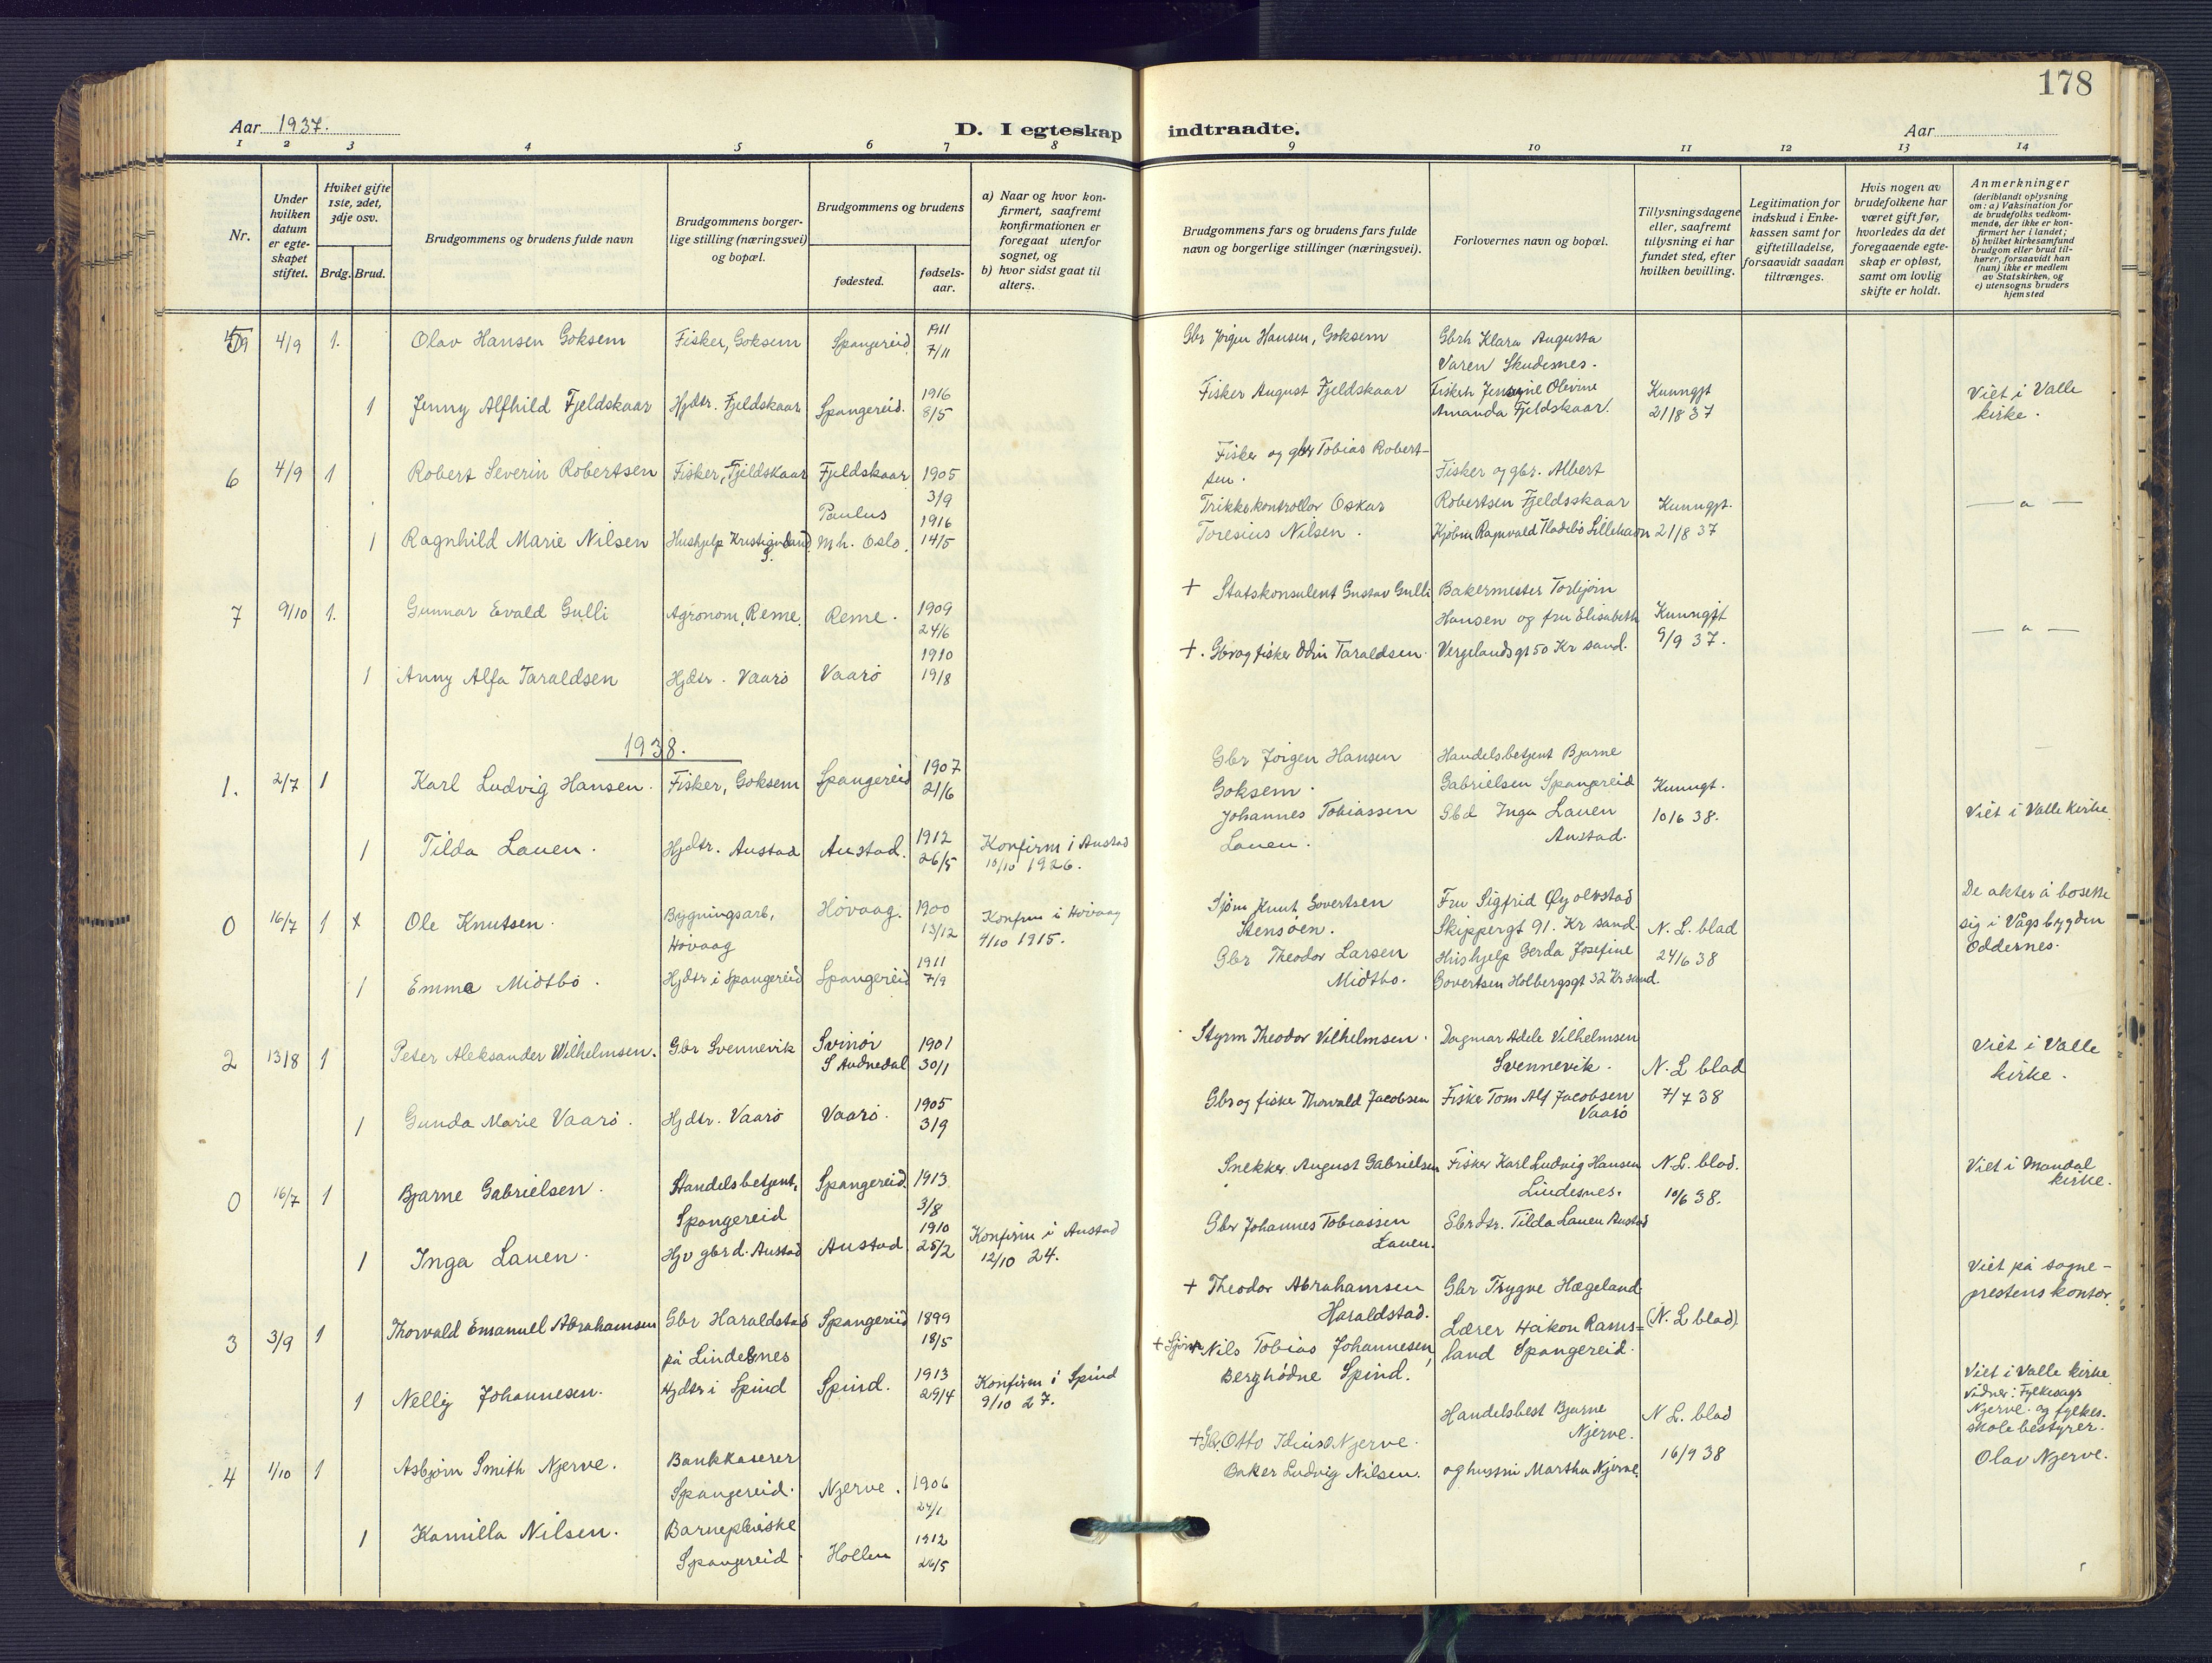 178
Aar 1937.
D. I egteskap indtraadte.
Aar
1 2 3 4 5 6 7 8 9 10 11 12 13 14
Nr.
Under hvilken datum er egteskapet stiftet.
Hviket gifte 1ste, 2det, 3dje osv.
Brdg. Brud.
Brudgommens og brudens fulde navn
Brudgommens borgerlige stilling (næringsvei) og bopæl.
Brudgommens og brudens
fødested.
fødselsaar.
a) Naar og hvor konfirmert, saafremt konfirmationen er foregaat utenfor sognet, og
b) hvor sidst gaat til alters.
Brudgommens fars og brudens fars fulde navn og borgerlige stillinger (næringsvei).
Forlovernes navn og bopæl.
Tillysningsdagene eller, saafremt tillysning ei har fundet sted, efter hvilken bevilling.
Legitimation for indskud i Enkekassen samt for giftetilladelse, forsaavidt saadan tiltrænges.
Hvis nogen av brudefolkene har været gift før, hvorledes da det foregaaende egteskap er opløst, samt om lovlig skifte er holdt.
Anmerkninger
(deriblandt oplysning om: a) Vaksination for de brudefolks vedkommende, der ikke er konfirmert her i landet;
b) hvilket kirkesamfund brudgom eller brud tilhører, forsaavidt han (hun) ikke er medlem av Statskirken, og
c) utensogns bruders hjemsted
5 4/9 1. Olav Hansen Goksem Fisker, Goksem Spangereid 1911 7/11
Gbr Jörgen Hansen, Goksem Gbrh Klara Augusta
Varen Skudesnes.
1 Jenny Alfhild Fjeldskaar Hjdtr. Fjeldskaar Spangereid. 1916 8/5
Fisker August Fjeldskaar Fiskerh Olevine
Amanda Fjeldskaar. Kunngjt 21/8 37 Viet i Valle kirke.
6 4/9 1 Robert Severin Robertsen Fisker, Fjeldskaar Fjeldskaar 1905 3/9
Fisker og gbr Tobias Robertsen. Fisker og gbr. Albert
Robertsen Fjeldsskaar Kunngjt. 21/8 37 — " —
1 Ragnhild Marie Nilsen Hushjelp Kristiansand S. Paulus Mh. Oslo. 1916 14/5
Trikkekontrollør Oskar
Toresius Nilsen.
7 9/10 1. Gunnar Evald Gulli Agronom, Reme. Reme. 1909 24/6
+ Statskonsulent Gustav Gulli Bakermester Torbjørn
Hansen og fru Elisabeth Kunngjt 9/9 37. — " —
1 Anny Alfa Taraldsen Hjdtr. Vaarö Vaarö 1910 19/8
+. Gbr og fisker Odin Taraldsen. Vergelandsgt 50 Kr sand.
1938.
1. 2/7 1 Karl Ludvig Hansen. Fisker, Goksem Spangereid 1907 21/6
Gbr Jörgen Hansen Goksem. Handelsbetjent Bjarne
Gabrielsen Spangereid Kunngt. 10/6 38. Viet i Valle kirke.
1 Tilda Lauen. Hjdtr. Austad Austad. 1912 26/5 Konfirm i Austad 10/10 1926.
Johannes Tobiassen Lauen. Gbd Inga Lauen Austad.
0 16/7 1 Ole Knutsen. Bygningsarb, Hövaag Hövaag. 1900 13/12 Konfirm i Hövaag 4/10 1915.
Sjøm Knut Govertsen Stensöen. Fru Sigfrid Øyolvstad
Skippergt 91. Kr sand. N. L. blad 24/6 38 De akter å bosette sig i Vågsbygden Oddernes.
1 Emma Midtbö. Hjdtr i Spangereid Spangereid 1911 7/9
Gbr Theodor Larsen Midtbo. Hushjelp Gerda Josefine
Govertsen Holbergsgt 32 Kr sand.
2 13/8 1 Peter Aleksander Wilhelmsen. Gbr Svennevik Svinör S Audnedal 1901 30/1
Styrm Theodor Vilhelmsen. Dagmar Adele Vilhelmsen
Svennevik. N. L blad 7/7 38 Viet i Valle kirke.
1 Gunda Marie Vaarö. Hjdtr. Vaarö Vaarö. 1905 3/9
Gbr og fisker Thorvald Jacobsen Fisker Tom Alf Jacobsen Vaarö
0 16/7 1 Bjarne Gabrielsen. Handelsbetjent, Spangereid Spangereid. 1913 3/8
Snekker August Gabrielsen Fisker Karl Ludvig Hansen
Lindesnes. N. L. blad. 10/6 38. Viet i Mandal kirke.
1 Inga Lauen. Hjv gbrd. Austad Austad 1910 25/2 Konfirm i Austad 12/10 24.
Gbr Johannes Tobiassen Lauen. Gbrdtr. Tilda Lauen Austad
3 3/9 1 Thorvald Emanuel Abrahamsen Gbr Haraldstad på Lindesnes Spangereid 1899 18/5
+ Theodor Abrahamsen Haraldstad. Gbr Trygve Hægeland
Lærer Håkon Ramsland Spangereid. (N. L blad) Viet på sogneprestens kontor.
1 Nelly Johannesen. Hjdtr i Spind Spind. 1913 29/4 Konfirm i Spind 9/10 27.
+ Sjöm Nils Tobias Johannesen, Berghödne Spind.
4 1/10 1 Asbjörn Smith Njerve. Bankkaserer Spangereid. Njerve. 1906 24/1
+ Gbr. Otto Njerve. Handelsbest Bjarne
Njerve. N L. blad 16/9 38 Viet i Valle kirke.
Vidner: Fylkesags Njerve. og fylkesskolebestyrer. Olav Njerve.
1 Kamilla Nilsen. Barnepleiske Spangereid. Hollen 1912 26/5
Baker Ludvig Nilsen. og hustru Martha Njerve.